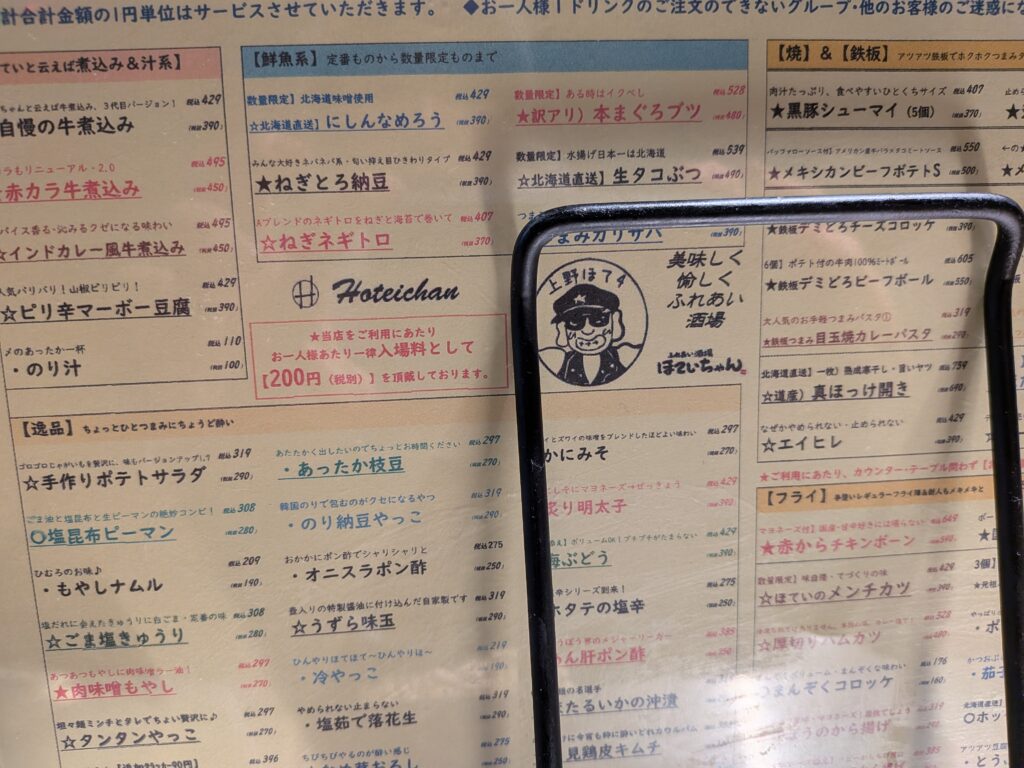 計合計金額の1円単位はサービスさせていただきます。 ◆お一人様1ドリンクのご注文のできないグループ・他のお客様のご迷惑にな
ていと云えば煮込み&汁系】
ちゃんと云えば牛煮込み、3代目バージョン! 税込429
自慢の牛煮込み (税抜390)
らもリニューアル・2.0 税込495
☆赤カラ牛煮込み (税抜450)
パイス香る・沁みるクセになる味わい 税込495
☆インドカレー風牛煮込み (税抜450)
人気バリバリ!山椒ピリピリ! 税込429
☆ピリ辛マーボー豆腐 (税抜390)
メのあったか一杯 税込110
・のり汁 (税抜100)
【鮮魚系】 定番ものから数量限定ものまで
数量限定】北海道味噌使用 税込429
☆北海道直送】にしんなめろう (税抜390)
みんな大好きネバネバ系・匂い抑え目ひきわりタイプ 税込429
★ねぎとろ納豆 (税抜390)
Aブレンドのネギトロをねぎと海苔で巻いて 税込407
☆ねぎネギトロ (税抜370)
数量限定】ある時はイクべし 税込528
★訳アリ)本まぐろブツ (税抜480)
数量限定】水揚げ日本一は北海道 税込539
☆北海道直送】生タコぶつ (税抜490)
つま
つまみガリサバ (税抜390)
Hoteichan
★当店をご利用にあたり
お一人様あたり一律入場料として
【200円(税別)】を頂戴しております。
上野ほてチ
美味しく
愉しく
ふれあい
酒場
ふれあい酒場
ほていちゃん
【焼】&【鉄板】 アツアツ鉄板でホクホクつまみタ
肉汁たっぷり、食べやすいひとくちサイズ 税込407
★黒豚シューマイ(5個) (税抜370)
バッファローソース付】アメリカン産牛バラメタコミートソース 税込550
★メキシカンビーフポテトS (税抜500)
★鉄板デミとろチーズコロッケ (税抜390)
6個】ポテト付の牛肉100%ミートボール 税込605
★鉄板デミどろビーフボール (税抜550)
大人気のお手軽つまみパスタ① 税込319
★鉄板つまみ目玉焼カレーパスタ (税抜290)
北海道直送】一枚)熟成寒干し・旨いヤツ 税込759
☆道産)真ほっけ開き (税抜690)
なぜかやめられない・止められない 税込429
☆エイヒレ (税抜390)
★ご利用にあたり、カウンター・テーブル問わず【お
【フライ】
マヨネーズ付】国産・甘辛好きには堪らない 税込649
★赤からチキンボーン (税抜590)
数量限定】味自慢・てづくりの味 税込429
☆ほていのメンチカツ (税抜390)
税込528
☆厚切りハムカツ (税抜480)
・まんぞくな味わい 税込176
まんぞくコロッケ (税抜160)
税込319
ぼうのから揚げ
【逸品】 ちょっとひとつまみにちょうど酔い
ゴロゴロじゃがいもを贅沢に、味もバージョンアップ1.7 税込319
☆手作りポテトサラダ (税抜290)
ごま油と塩昆布と生ピーマンの絶妙コンビ! 税込308
〇塩昆布ピーマン (税抜280)
ひむろのお味♪ 税込209
・もやしナムル (税抜190)
塩だれに会えたきゅうりに白ごま・定番の味 税込308
☆ごま塩きゅうり (税抜280)
あつあつもやしに肉味噌ラー油! 税込297
★肉味噌もやし (税抜270)
坦々麺ミンチとタレでちょい贅沢に♪ 税込297
☆タンタンやっこ (税抜270)
【追加クラッカー90円】 税込396
あたたかく出したいのでちょっとお時間ください 税込297
・あったか枝豆 (税抜270)
韓国のりで包むのがクセになるやつ 税込319
・のり納豆やっこ (税抜290)
おかかにポン酢でシャリシャリと 税込275
・オニスラポン酢 (税抜250)
壺入りの特製醤油に付け込んだ自家製です 税込319
☆うずら味玉 (税抜290)
ひんやりほてほて~ひんやりほ~ 税込219
・冷やっこ (税抜190)
やめられない止まらない 税込319
・塩茹で落花生 (税抜290)
ちびちびやるのが酔い感じ 税込275
(税抜250)
イとズワイの味噌をブレンドしたほどよい味わい 税込297
かにみそ (税抜270)
しそにマヨネーズ→ぜっきょう 税込429
炙り明太子 (税抜390)
添え】ボリュームOK!プチプチがたまらない 税込429
海ぶどう (税抜390)
辛シリーズ到来! 税込275
ホタテの塩辛 (税抜250)
ぽう界のメジャーリーガー 税込385
あん肝ポン酢 (税抜350)
種の名選手 税込319
ほたるいかの沖漬 (税抜290)
に今宵も粋に酔いどれカウルバム
見鶏皮キムチ